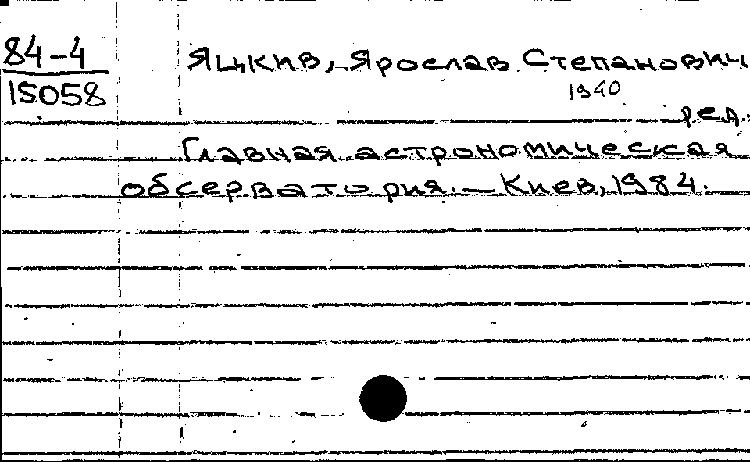 84-4
15058
Яцкив, Ярослав Степанович
1940
ред.
Главная астрономическая
обсерватория. — Киев, 1984.